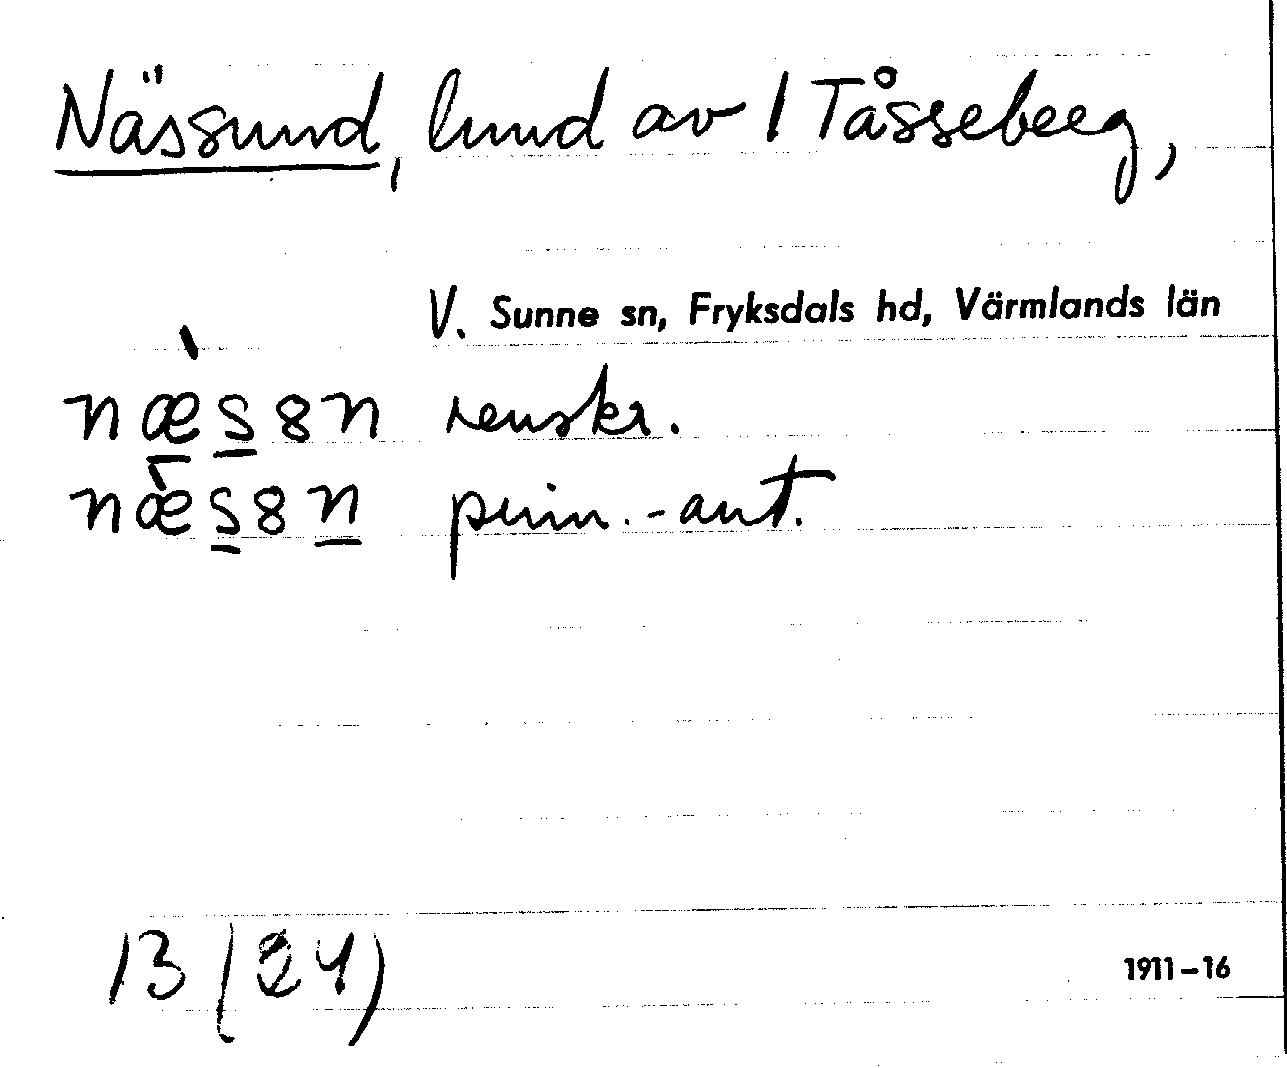 Nässund, lund av 1 Tåsseberg,
V. Sunne sn, Fryksdals hd, Värmlands län
næ̀s8n renskr.
næ̀s8n prim.-ant.
13 (24)
1911-16